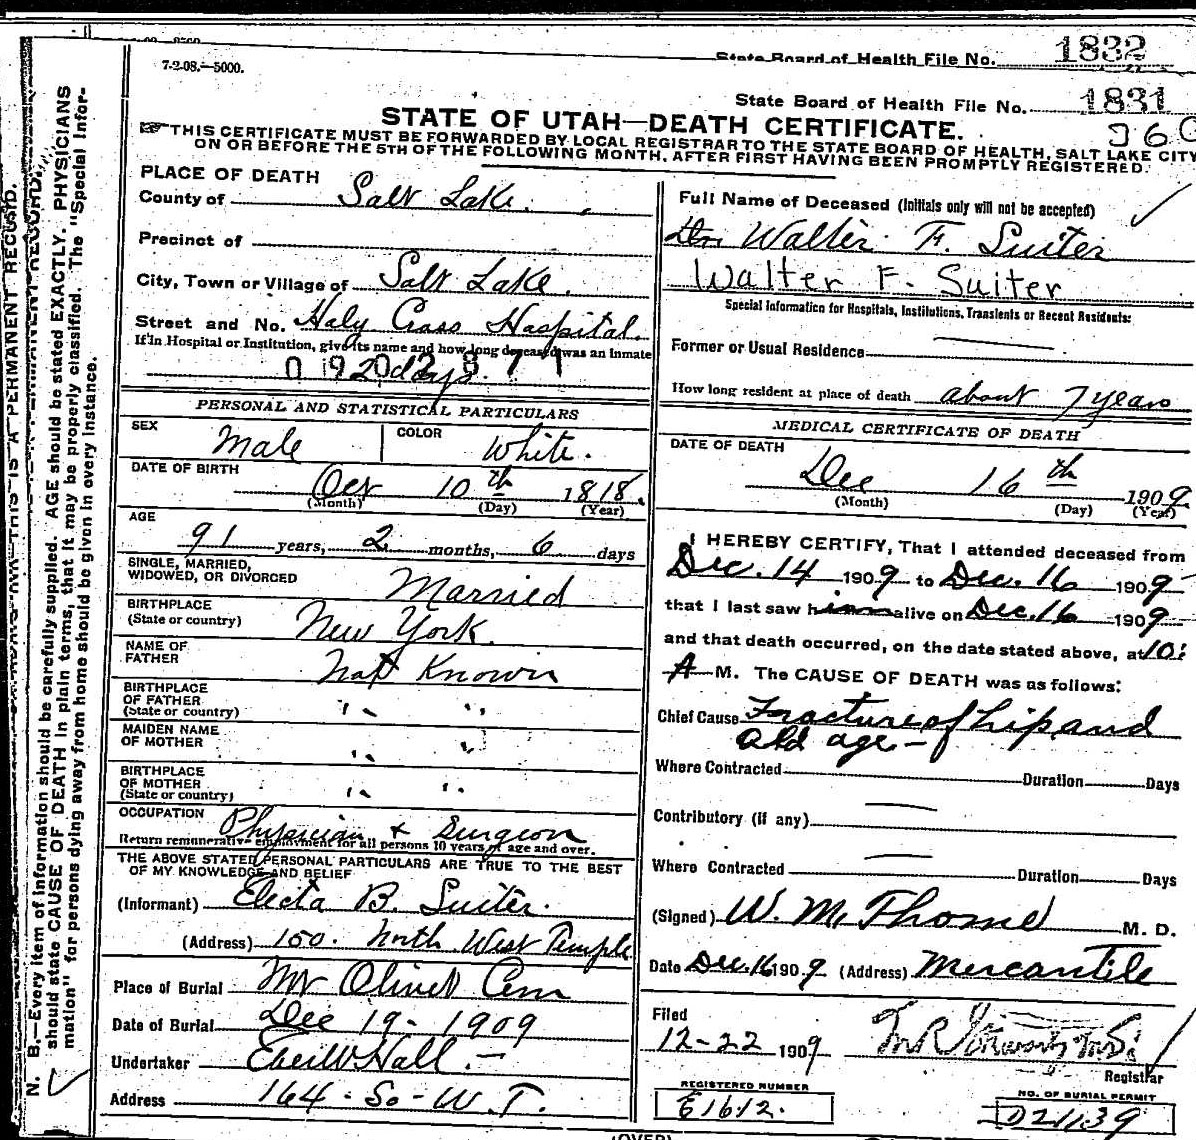 State Board of Health File No. 1832
7-2-08.—5000.
State Board of Health File No. 1831
STATE OF UTAH—DEATH CERTIFICATE.
THIS CERTIFICATE MUST BE FORWARDED BY LOCAL REGISTRAR TO THE STATE BOARD OF HEALTH, SALT LAKE CITY
ON OR BEFORE THE 5TH OF THE FOLLOWING MONTH, AFTER FIRST HAVING BEEN PROMPTLY REGISTERED.
PLACE OF DEATH
County of Salt Lake.
Precinct of
City, Town or Village of Salt Lake.
Street and No. Holy Cross Hospital.
If in Hospital or Institution, give its name and how long deceased was an inmate
2 days.
PERSONAL AND STATISTICAL PARTICULARS
SEX Male COLOR White.
DATE OF BIRTH
Oct 10th 1818.
(Month) (Day) (Year)
AGE
91 years, 2 months, 6 days
SINGLE, MARRIED,
WIDOWED, OR DIVORCED Married
BIRTHPLACE
(State or country) New York.
NAME OF
FATHER Not Known
BIRTHPLACE
OF FATHER
(State or country) " "
MAIDEN NAME
OF MOTHER " "
BIRTHPLACE
OF MOTHER
(State or country) " "
OCCUPATION Physician & Surgeon
Return remunerative employment for all persons 10 years of age and over.
THE ABOVE STATED PERSONAL PARTICULARS ARE TRUE TO THE BEST
OF MY KNOWLEDGE AND BELIEF
(Informant) Electa B. Suiter.
(Address) 150. North West Temple
Place of Burial Mt Olivet Cem
Date of Burial Dec 19 - 1909
Undertaker Hall
Address 164 - So - W. T.
Full Name of Deceased (Initials only will not be accepted)
Dr. Walter F. Suiter
Walter F. Suiter
Special Information for Hospitals, Institutions, Transients or Recent Residents:
Former or Usual Residence
How long resident at place of death about 7 years
MEDICAL CERTIFICATE OF DEATH
DATE OF DEATH
Dec 16th 1909
(Month) (Day) (Year)
I HEREBY CERTIFY, That I attended deceased from
Dec. 14 1909 to Dec. 16 1909
that I last saw him alive on Dec. 16 1909
and that death occurred, on the date stated above, at 10:
A M. The CAUSE OF DEATH was as follows:
Chief Cause Fracture of hip and
old age -
Where Contracted Duration Days
Contributory (if any)
Where Contracted Duration Days
(Signed) W. M. Thome M. D.
Date Dec. 16 1909 (Address) Mercantile
Filed
12-22 1909
Registrar
REGISTERED NUMBER
E1612.
NO. OF BURIAL PERMIT
D21139
(OVER)
N. B.—Every item of information should be carefully supplied. AGE should be stated EXACTLY. PHYSICIANS
should state CAUSE OF DEATH in plain terms, that it may be properly classified. The "Special Infor-
mation" for persons dying away from home should be given in every instance.
THIS IS A PERMANENT RECORD.